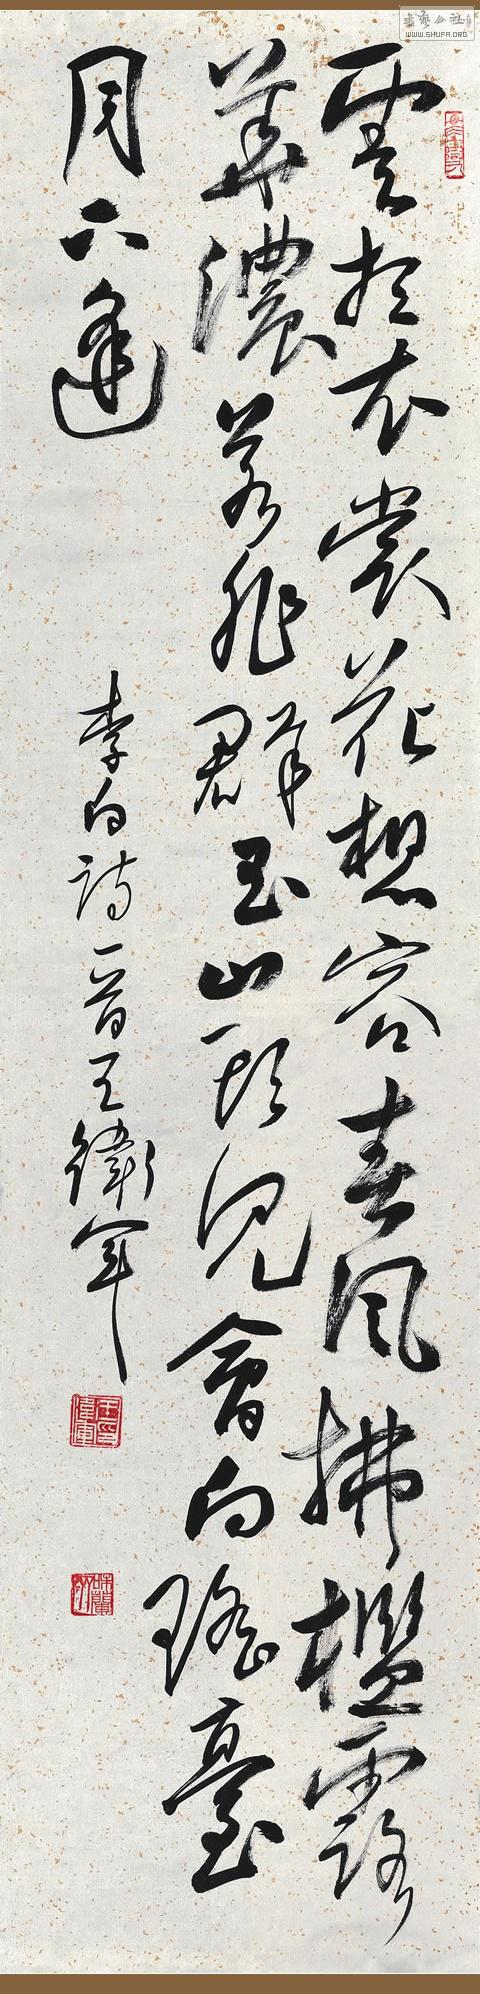 雲想衣裳花想容春風拂檻露
華濃若非群玉山頭見會向瑤臺
月下逢
李白詩一首王衛軍
書藝公社
WWW.SHUFA.ORG